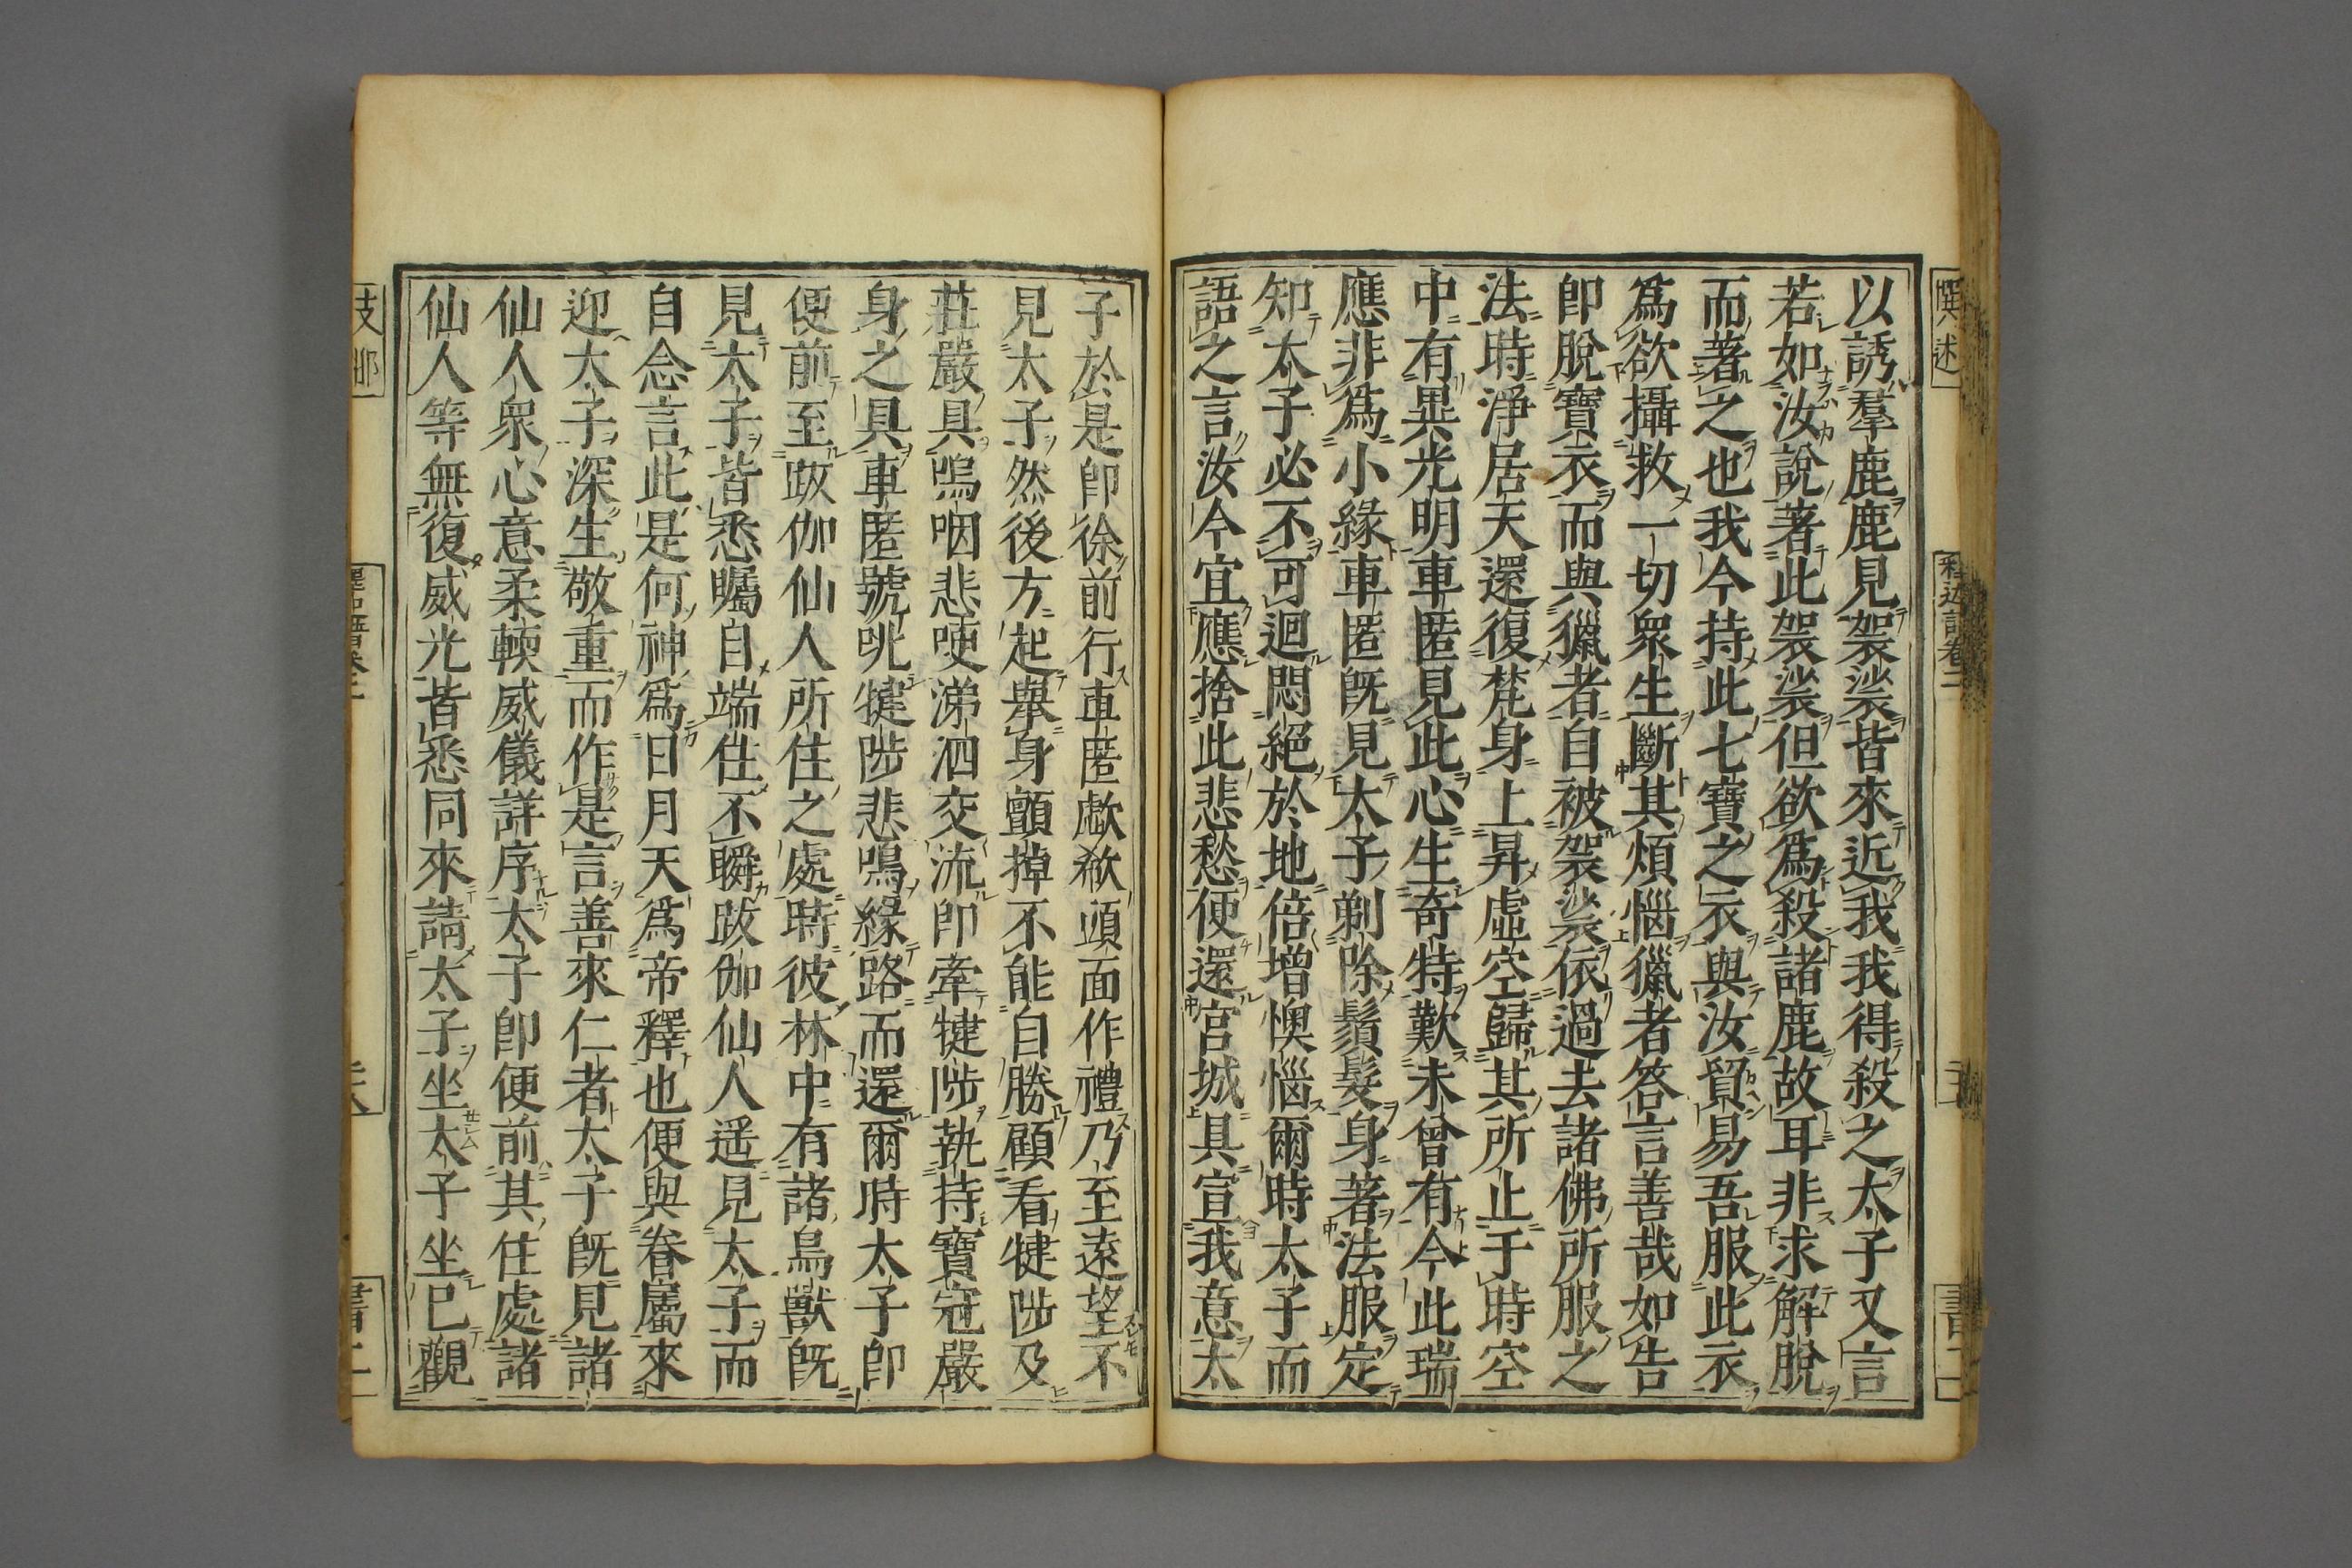 以誘羣鹿鹿見袈裟皆來近我我得殺之太子又言
若如汝說著此袈裟但欲爲殺諸鹿故耳非求解脫
而著之也我今持此七寶之衣與汝貿易吾服此衣
爲欲攝救一切衆生斷其煩惱獵者答言善哉如告
卽脫寶衣而與獵者自被袈裟依過去諸佛所服之
法時淨居天還復梵身上昇虛空歸其所止于時空
中有異光明車匿見此心生奇特歎未曾有今此瑞
應非爲小緣車匿旣見太子剃除鬚髮身著法服定
知太子必不可迴悶絕於地倍增懊惱爾時太子而
語之言汝今宜應捨此悲愁便還宮城具宣我意太
子於是卽徐前行車匿歔欷頭面作禮乃至遠望不
見太子然後方起擧身顫掉不能自勝顧看犍陟及
莊嚴具嗚咽悲哽涕泗交流卽牽犍陟執持寶冠嚴
身之具車匿號咷犍陟悲鳴緣路而還爾時太子卽
便前至跋伽仙人所住之處時彼林中有諸鳥獸旣
見太子皆悉矚目端住不瞬跋伽仙人遥見太子而
自念言此是何神爲日月天爲帝釋也便與眷屬來
迎太子深生敬重而作是言善來仁者太子旣見諸
仙人衆心意柔輭威儀詳序太子卽便前其住處諸
仙人等無復威光皆悉同來請太子坐太子坐已觀